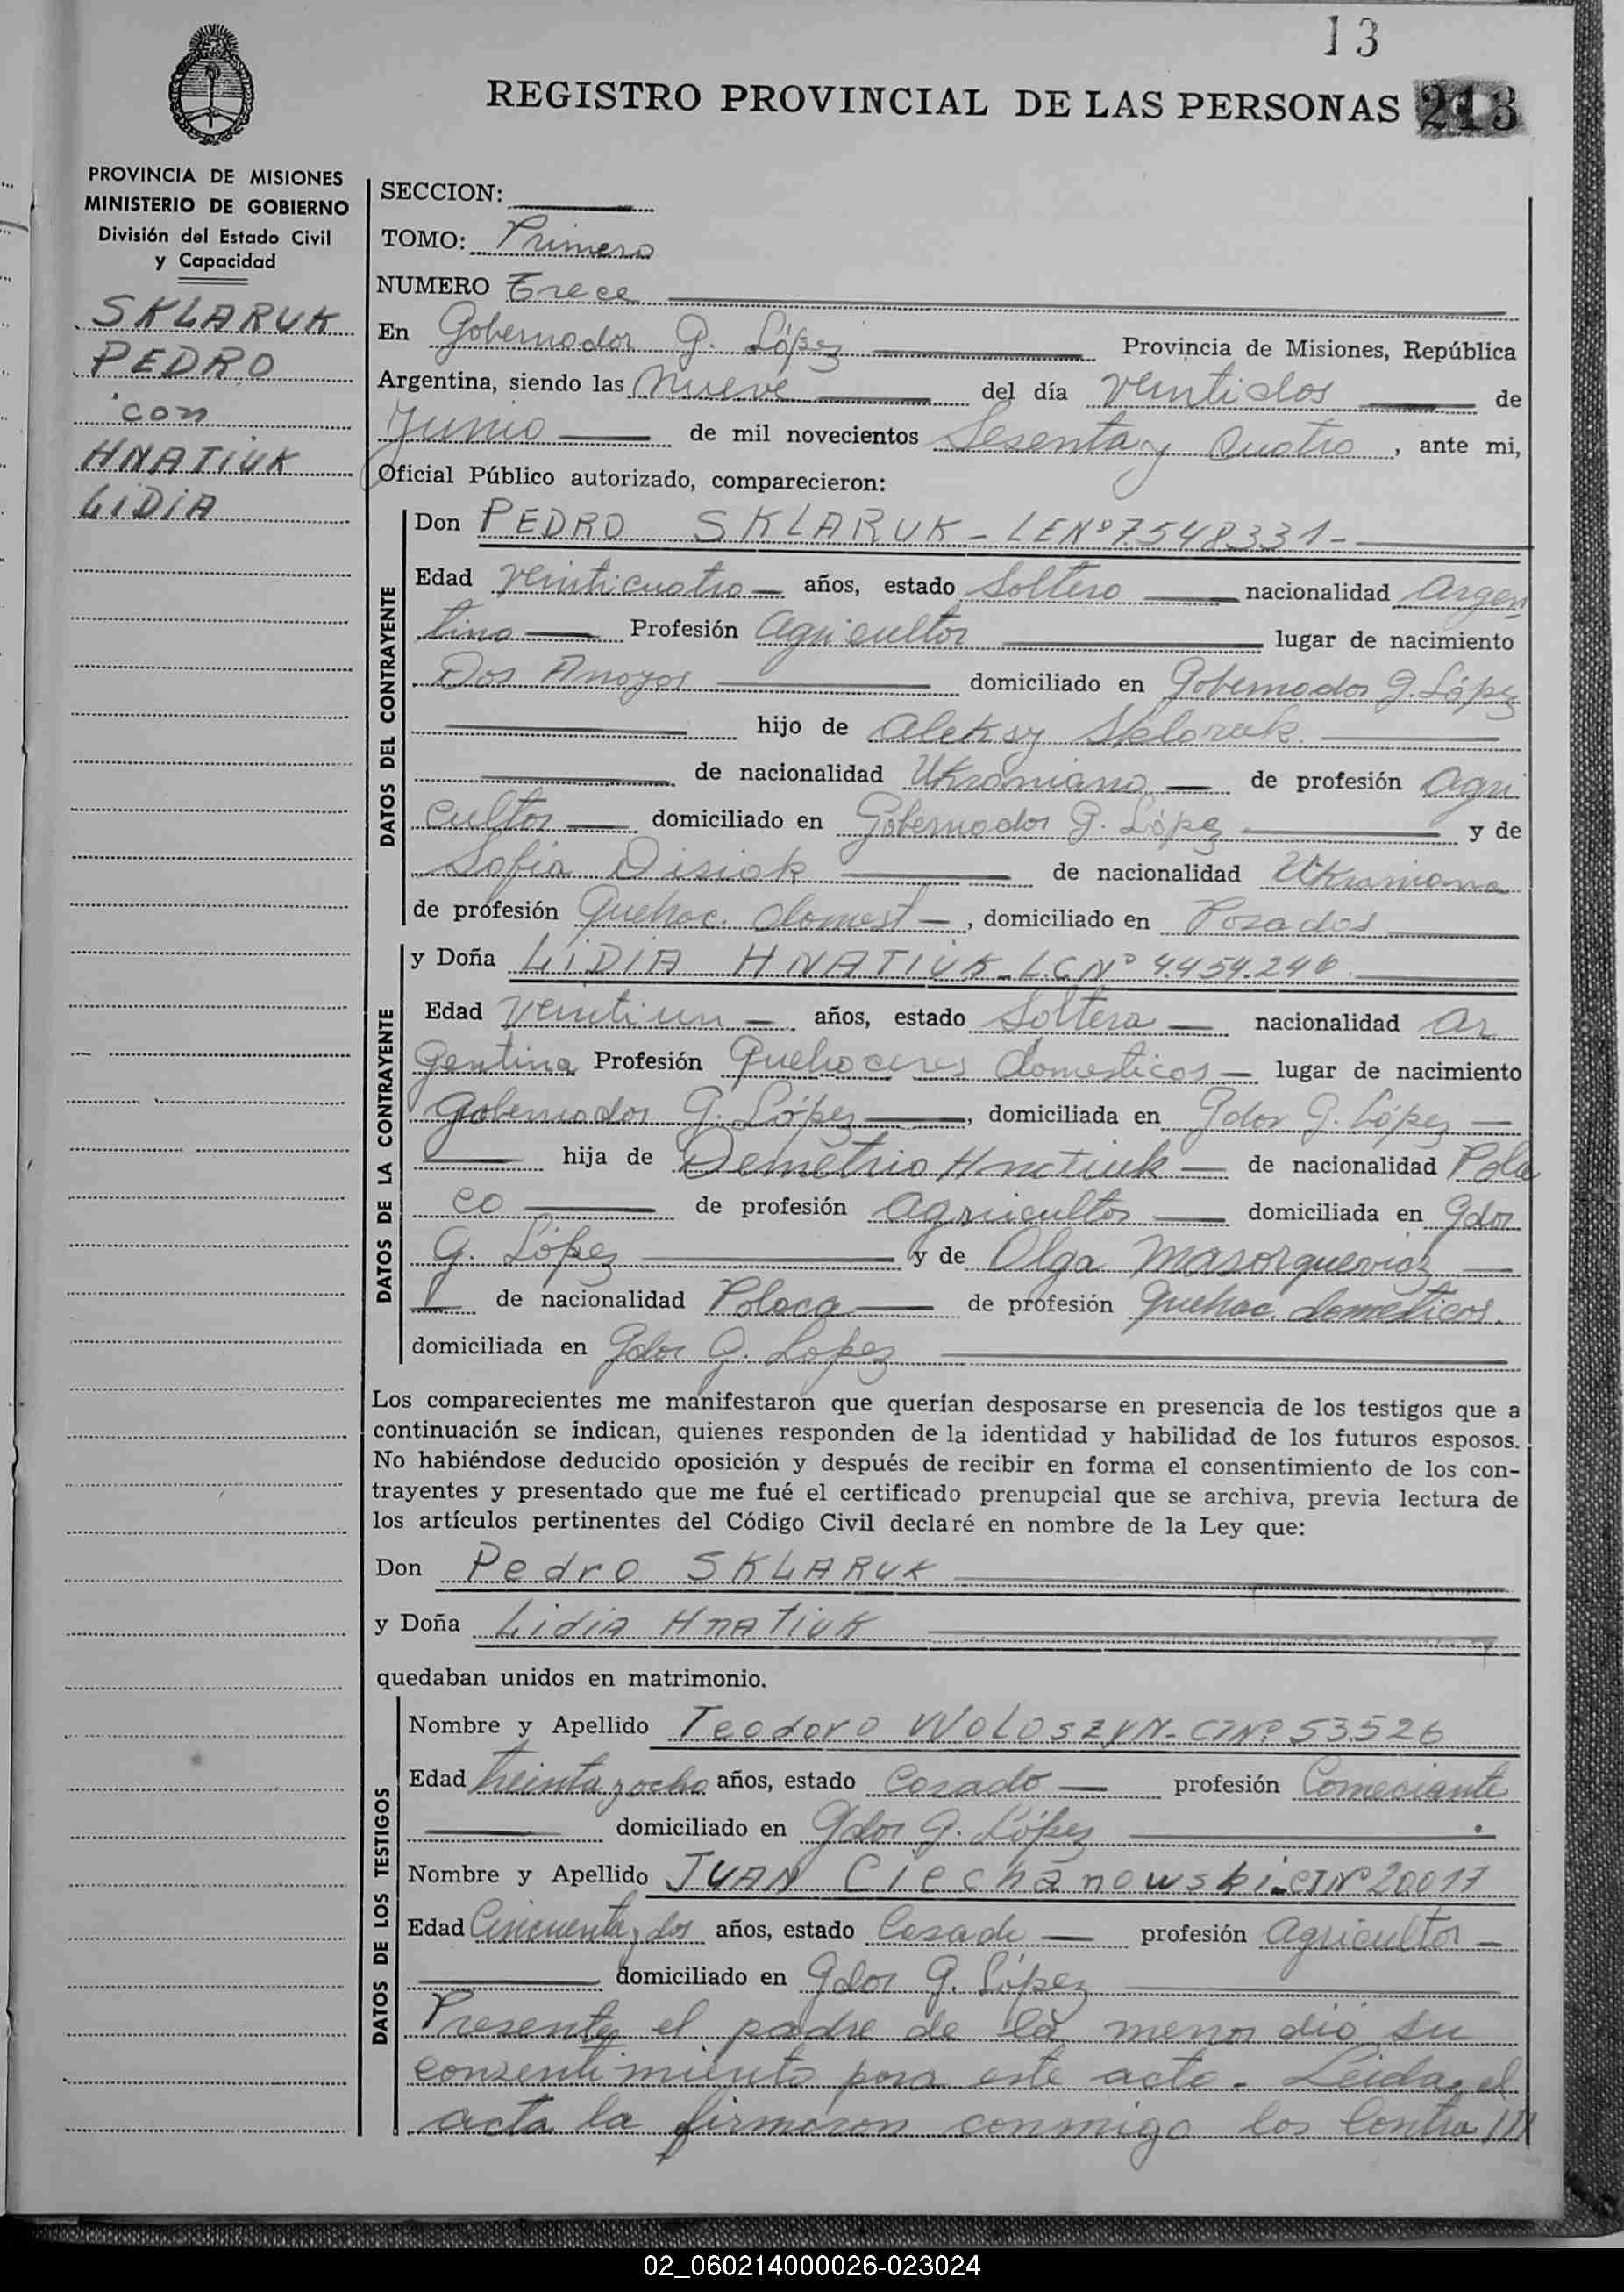 13
REGISTRO PROVINCIAL DE LAS PERSONAS 213
PROVINCIA DE MISIONES
MINISTERIO DE GOBIERNO
División del Estado Civil
y Capacidad
SKLARUK
PEDRO
con
HNATIUK
LIDIA
SECCION:
TOMO: Primero
NUMERO Trece
En Gobernador G. López Provincia de Misiones, República
Argentina, siendo las nueve del día veintidos de
Junio de mil novecientos Sesenta y Cuatro, ante mi,
Oficial Público autorizado, comparecieron:
DATOS DEL CONTRAYENTE
Don PEDRO SKLARUK - LE Nº 7.548.331-
Edad veinticuatro años, estado Soltero nacionalidad Argen
tino Profesión Agricultor lugar de nacimiento
Dos Arroyos domiciliado en Gobernador G. López
hijo de Aleksy Sklaruk
de nacionalidad Ukraniano de profesión Agri
cultor domiciliado en Gobernador G. López y de
Sofia Disiak de nacionalidad Ukraniana
de profesión Quehac. domest , domiciliado en Posadas
DATOS DE LA CONTRAYENTE
y Doña LIDIA HNATIUK - L.C. Nº 4.454.246
Edad veintiun años, estado Soltera nacionalidad Ar
gentina Profesión Quehaceres domesticos lugar de nacimiento
Gobernador G. López , domiciliada en Gdor G. López
hija de Demetrio Hnatiuk de nacionalidad Pola
co de profesión Agricultor domiciliada en Gdor
G. López y de Olga Masorquevicz
de nacionalidad Polaca de profesión Quehac. dometicos.
domiciliada en Gdor G. Lopez
Los comparecientes me manifestaron que querían desposarse en presencia de los testigos que a
continuación se indican, quienes responden de la identidad y habilidad de los futuros esposos.
No habiéndose deducido oposición y después de recibir en forma el consentimiento de los con-
trayentes y presentado que me fué el certificado prenupcial que se archiva, previa lectura de
los artículos pertinentes del Código Civil declaré en nombre de la Ley que:
Don Pedro SKLARUK
y Doña Lidia HnATiUK
quedaban unidos en matrimonio.
DATOS DE LOS TESTIGOS
Nombre y Apellido Teodoro WOLOSZYN - CI Nº 53.526
Edad treinta y ocho años, estado Casado profesión Comeciante
domiciliado en Gdor G. López
Nombre y Apellido JUAN Ciechanowski - CI Nº 20017
Edad Cincuenta y dos años, estado Casado profesión Agricultor
domiciliado en Gdor G. López
Presente el padre de la menor dió su
consentimiento para este acto. Leida el
acta la firmaron conmigo los Contra///
02_060214000026-023024